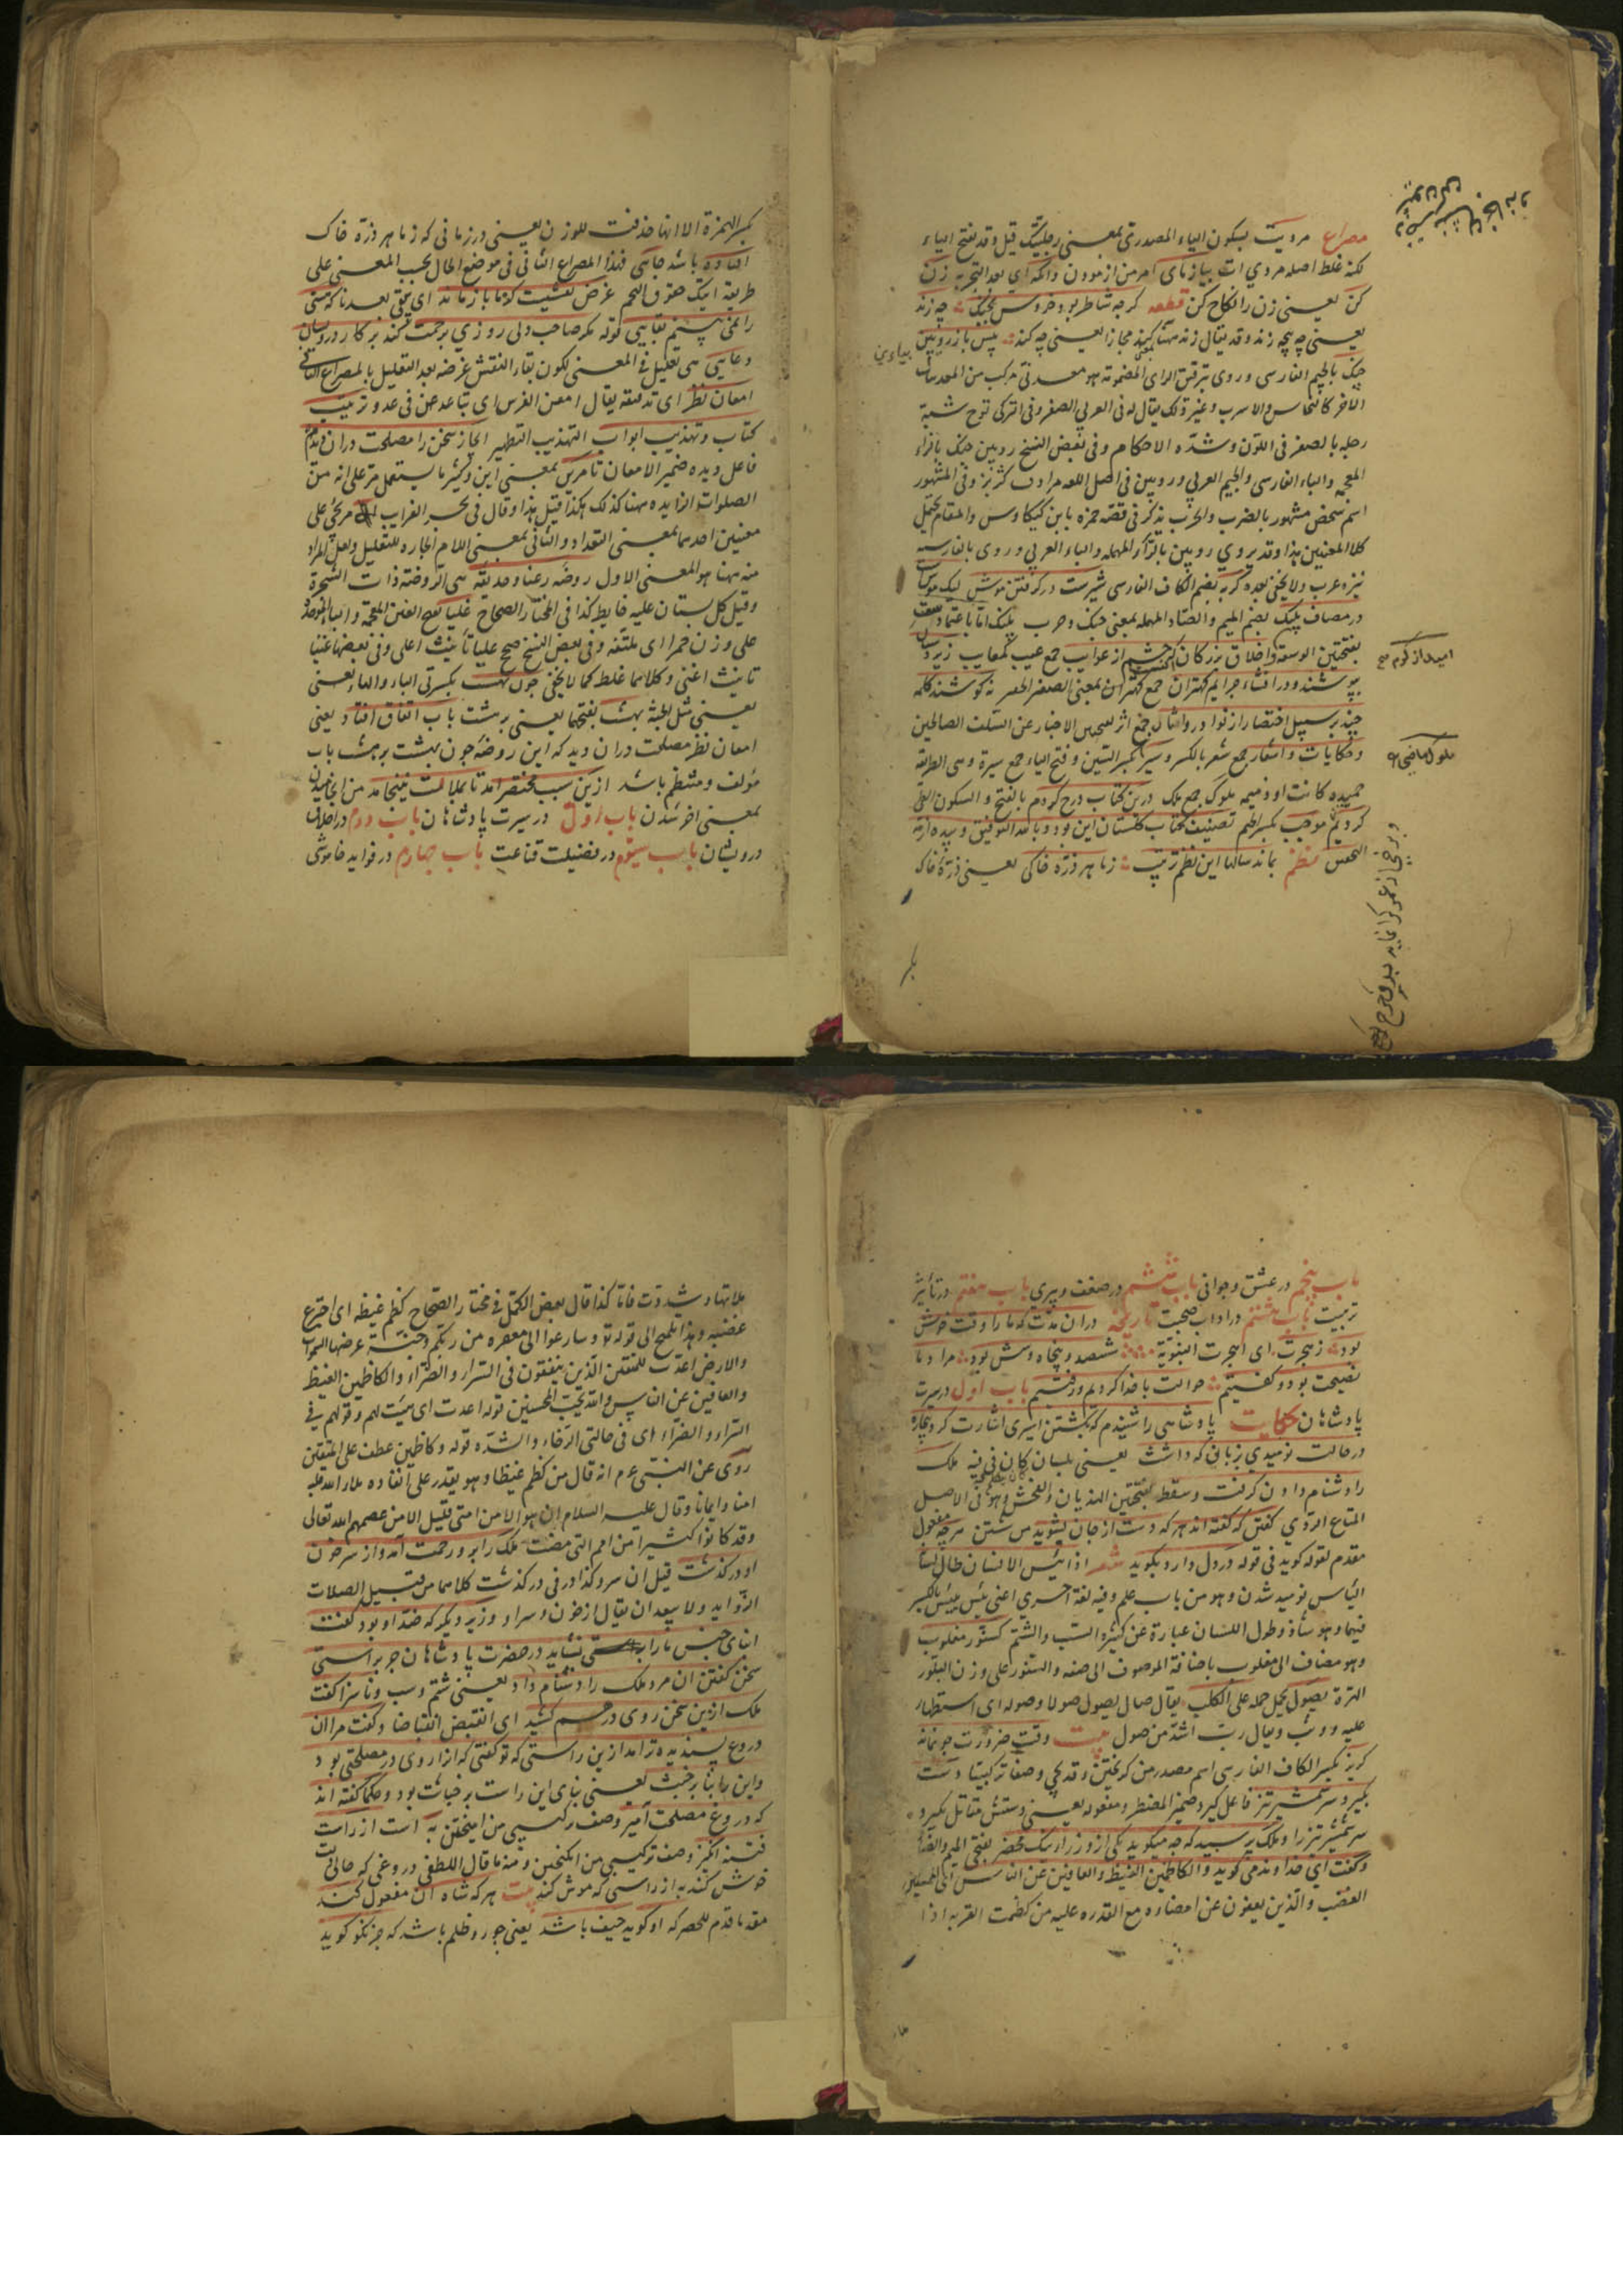 مصراع مرديت بسكون الياء المصدرى بمعنى رجليتك قيل وقد بفتح الياء
لكنه غلط اصله مردي ات بيازماى امر من ازمودن وانگه اى بعد التجربه زن
كن يعنى زن را نكاح كن قطعه گرچه شاطر بود خروس بجنگ چه زند
يعنى چه پنجه زند وقد يقال زند مجازا يعنى چه كند پيش باز رويين
چنگ بالجيم الفارسى وروى بترقيق الراى المضمومة هو معدنى مركب من المعدنيات
الاخر كالنحاس والاسرب وغيره لك يقال له فى العربى الصفر وفى التركى توج شبه
رجله بالصفر فى اللون وشدّه الاحكام وفى بعض النسخ رويين جنگ بالزاء
المعجمه والباء الفارسى والجيم العربى ورويين فى اصل اللغه مرادف وفى المشهور
اسم شخص مشهور بالضرب والحرب يذكر فى قصّه حمزه باين كيكاوس والمقام يحتمل
كلا المعنيين هذا وقد يروي رويين بالرّاء المهمله والباء العربي وروى بالفارسيه
گربه بضم الكاف الفارسى شيرست در گرفتن موش ليك موشست
در مصاف پلنگ بضم الميم والصّاد المهمله بمعنى جنگ وحرب پلنك اما باعتماد سعت
بفتحتين الوسعة واخلاق بزرگان كه چشم از عوايب جمع عيب كمعايب زيردستان
بپوشند ودر افشاء جرايم كهتران جمع كهتر ان بمعنى الصغير الحقير نه كوشند كلمه
چند بر سبيل اختصار از نوادر وامثال جمع اثر بمعنى الاخبار عن السلف الصالحين
وحكايات واشعار جمع شعر بالكسر وسير بكسر السّين وفتح الياء جمع سيرة وهى الطريقه
حميده كانت او ذميمه ملوك جمع ملك درين كتاب درج كرديم بالفتح والسكون الطى
كرديم موجب بكسر الجيم تصنيف كتاب گلستان اين بود وبالله التوفيق
نظم بماند سالها اين نظم ترتيب ز ما هر ذرّه خاكى يعنى ذرّۀ خاك
اميد از كرم صح
ملوك ماضى
بكسر الهمزة الا انها حذفت للوزن يعنى در زمانى كه ز ما هر ذرّه خاك
افتاده باشد جايى فهذا المصراع الثانى فى موضع الحال بحسب المعنى على
طريقه اتيتك خفوق النجم غرض نقشيست كز ما باز ماند اى يبقى بعدنا كه هستى
را نمى بينم بقايى قوله مگر صاحب دلى روزي برحمت كند بر كار درويشان
دعايى هى تعليل فى المعنى لكون بقاء النقش غرضه بعد التعليل بالمصراع الثانى
امعان نظر اى تدقيقه يقال امعن الفرس اى تباعد عن فى عدو ترتيب
كتاب وتهذيب ابواب التهذيب التطهير ايجاز سخن را مصلحت در ان ديدم
فاعل ديده ضمير الامعان تا مرين بمعنى اين وكثيرا ما يستعمل مر على انه من
الصلوات الزايده ههنا كذلك هكذا قيل هذا وقال فى بحر الغرايب مر يجئ على
معنيين احدهما بمعنى التعداد والثانى بمعنى اللام الجاره للتعليل ولعل المراد
منه ههنا هو المعنى الاول روضه رعنا وحديقه هى الروضة ذات الشجرة
وقيل كل بستان عليه حايط كذا فى المختار الصحاح غلبا بفتح الغين المعجمه والباء الموحدة
على وزن حمرا اى ملتفّه وفى بعض النسخ صح عليا تأنيث اعلى وفى بعضها غنيا
تانيث اغنى وكلاهما غلط كما لا يخفى چون بهشت بكسرتى الباء والهاء يعنى
يعنى مثل الجنة بهشت بفتحها يعنى بر هشت باب اتفاق افتاد يعنى
امعان نظر مصلحت دران ديد كه اين روضه چون بهشت بر هشت باب
مؤلف ومنتظم باشد ازين سبب مختصر آمد تا بملالت نينجامد من انجاميدن
بمعنى اخر شدن باب اول در سيرت پادشاهان باب دوم در اخلاق
درويشان باب سيوم در فضيلت قناعت باب چهارم در فوايد خاموشى
باب پنجم در عشق وجوانى باب ششم در ضعف وپيرى باب هفتم در تأثير
تربيت باب هشتم در اداب صحبت تاريخ دران مدّت كه ما را وقت خوش
بود ز هجرت اى الهجرت النبويّة ششصد وپنجاه وشش بود مراد ما
نصيحت بود وگفتيم حوالت با خدا كرديم ورفتيم باب اول در سيرت
پادشاهان حكايت پادشاهى را شنيدم كه بكشتن اسيرى اشارت كرد بيچاره
در حالت نوميدي بزبانى كه داشت يعنى بلسان كان فى فيه ملك
را دشنام دادن گرفت وسقط بفتحتين الهذيان والفحش وهو فى الاصل
المتاع الردي گفتن كه گفته اند هر كه دست از جان بشويد من شستن هر چه مفعول
مقدم لقوله گويد فى قوله در دل دارد بگويد شعر اذا يئس الانسان طال لسانه
الياس نوميد شدن وهو من باب علم وفيه لغة اخرى اعنى يئس ييئس بالكسر
فيهما وهو شاذ وطول اللسان عبارة عن كثرة السّب والشتم كسنّور مغلوب
وهو مضاف الى مغلوب باضافة الموصوف الى صفه والسنّور على وزن البلّور
الهرّة يصول يحمل حمله على الكلب يقال صال يصول صولا وصوله اى استطهار
عليه ووثب ويقال ربّ اشدّ من صول بيت وقت ضرورت چو نماند
گريز بكسر الكاف الفارسى اسم مصدر من گريختن وقد يجى وصفا تركيبيا دست
بگيرد سر شمشير تيز فاعل گيرد ضمير المضطر ومفعوله يعنى دستش مقابل بگيرد
سر شمشير تيز را وملك پرسيد كه چه ميگويد يكى از وزراء نيك محضر بفتح الميم والضاد
وگفت اي خداوند مى گويد والكاظمين الغيظ والعافين عن الناس
الغضب والّذين يعفون عن امضاره مع القدره عليه من كظمت القربه اذا
ملاتها وشددت فاها كذا قال بعض الكمّل فى مختار الصّحاح كظم غيظه اى اجترع
غضبه وهذا تلميح الى قوله تع وسارعوا الى مغفره من ربّكم وجنّة عرضها السّموات
والارض اعدّت للمتقين الّذين ينفقون فى السّراء والضّراء والكاظمين الغيظ
والعافين عن الناس والله يحبّ المحسنين قوله اعدت اى هيّئت لهم وقولهم فى
السّراء والضرّاء اى فى حالتى الرّخاء والشدّه قوله وكاظمين عطف على المتقين
روى عن النبىّ عم انه قال من كظم غيظا وهو يقدر على انفاذه ملاء الله قلبه
امنا وايمانا وقال عليه السلام ان هؤلاء من امتى قليل الا من عصمهم الله تعالى
وقد كانوا كثيرا من امم التى مضت ملك را برو رحمت آمد واز سر خون
او درگذشت قيل ان سر وكذا در فى درگذشت كلاهما من قبيل الصلات
الزّوايد ولا يبعد ان يقال از خون وسر او وزير ديگر كه ضدّ او بود گفت
ابناى جنس ما را نشايد در حضرت پادشاهان جز براستى
سخن گفتن ان مرد ملك را دشنام داد يعنى شتم وسب وناسزا گفت
ملك ازين سخن روى درهم كشيد اى انقبض انقباضا وگفت مرا ان
دروغ پسنديده تر امد ازين راستى كه تو گفتى كه ازا روى در مصلحتى بود
واين را بنا بر خبث يعنى بناى اين راست بر خباثت بود وحكما گفته اند
كه دروغ مصلحت آميز وصف تركيبى من اميختن به است از راست
فتنه انگيز وصف تركيبى من انگيختن ومنه ما قال اللطفى دروغى كه حالى دلت
خوش كند به از راستى كه موش كند بيت هر كه شاه آن مفعول كند
مقدما قدم للحصر كه او گويد حيف باشد يعنى جور وظلم باشد كه جز نكو گويد